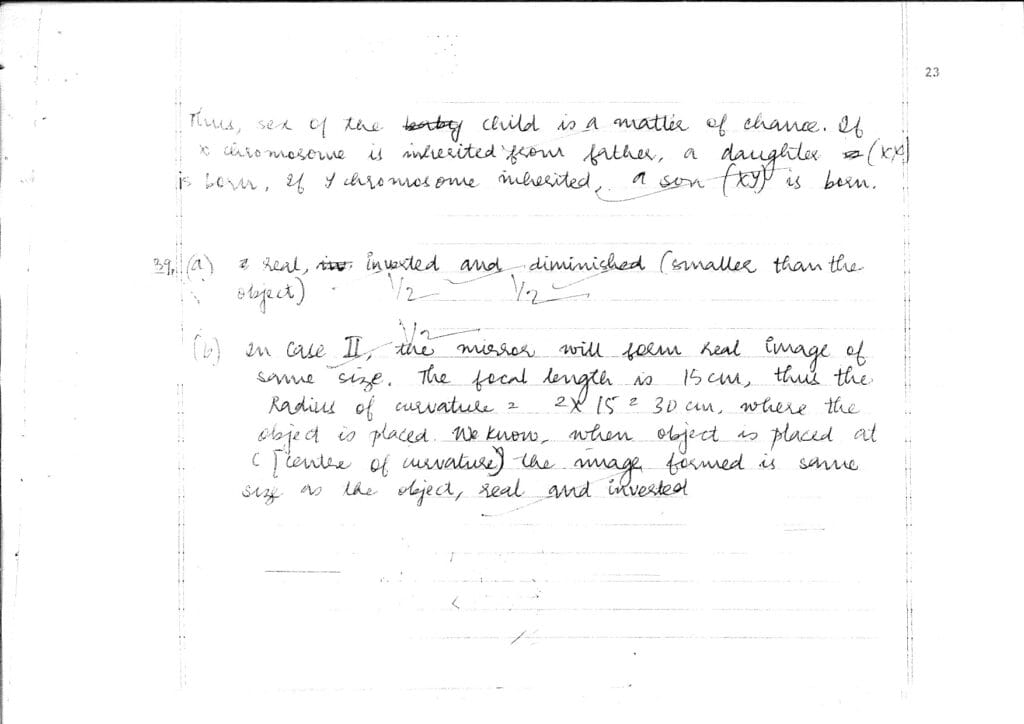 23
Thus, sex of the baby child is a matter of chance. If
x chromosome is inherited from father, a daughter = (XX)
is born, If Y chromosome inherited, a son (XY) is born.
39. (a) real, inverted and diminished (smaller than the
object) 1/2 1/2
1/2
(b) In case II, the mirror will form real image of
same size. The focal length is 15 cm, thus the
Radius of curvature = 2 x 15 = 30 cm, where the
object is placed. We know, when object is placed at
C [centre of curvature) the image formed is same
size as the object, real and inverted